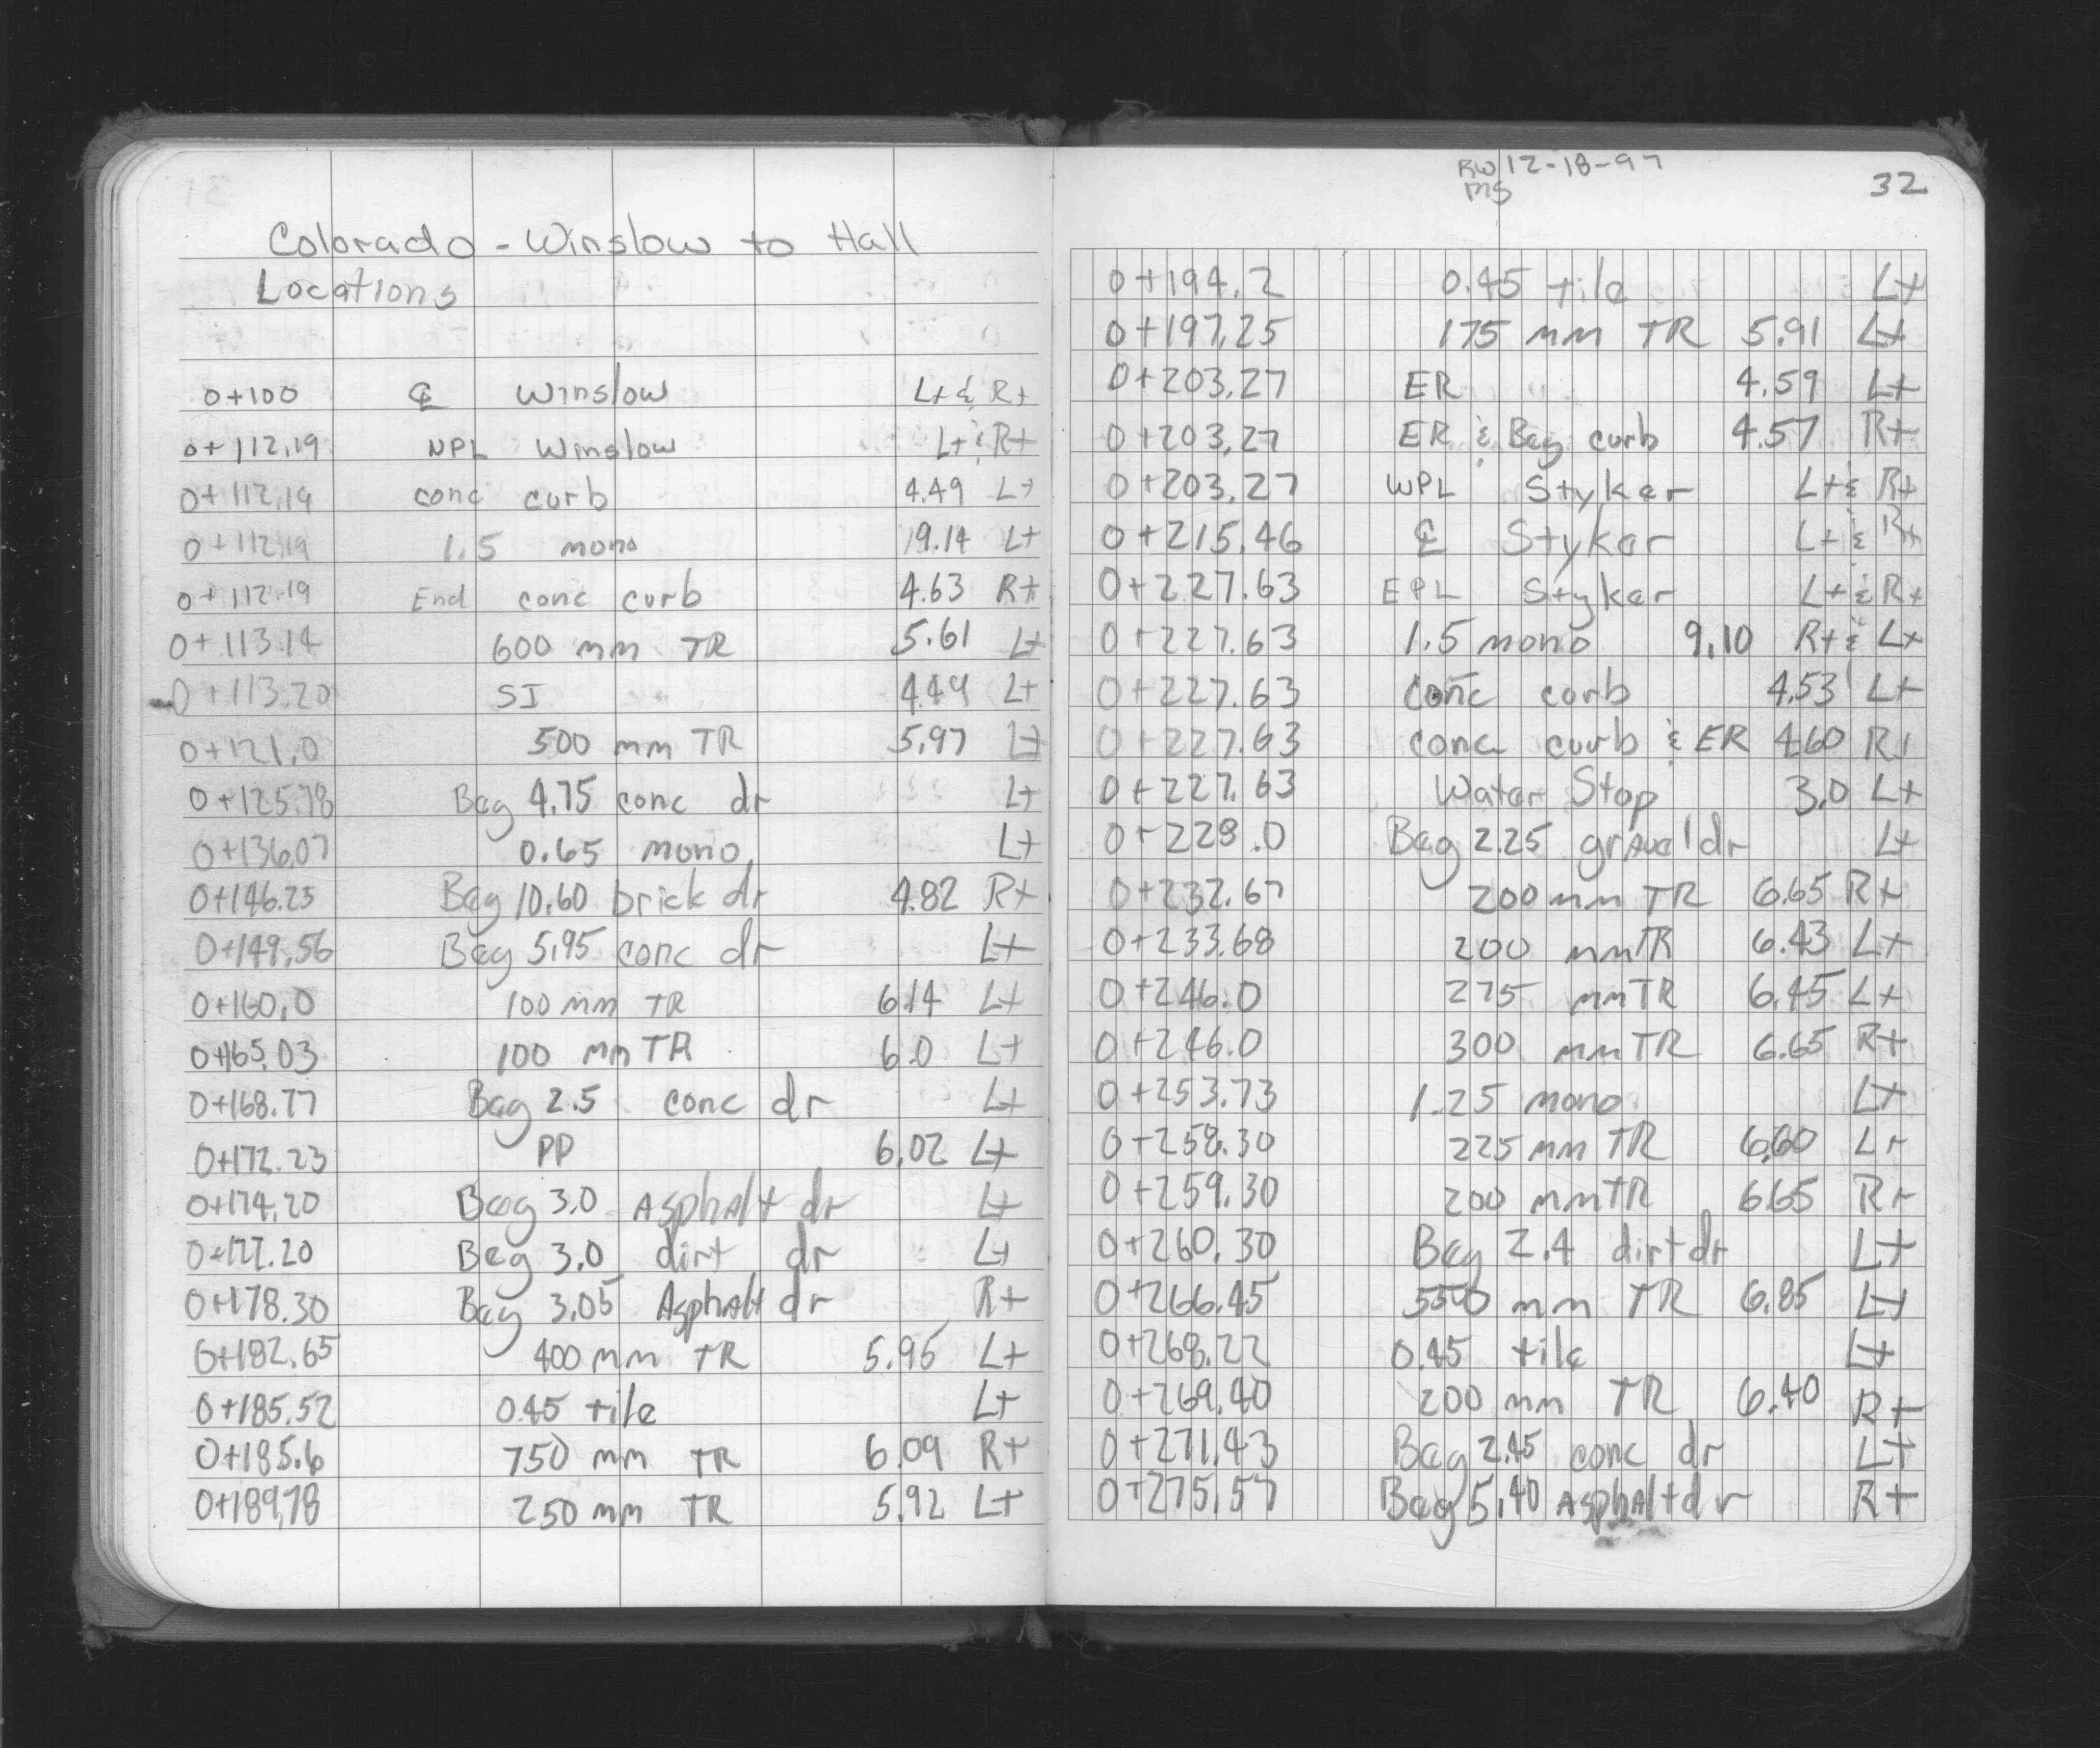 Colorado - Winslow to Hall
Locations
0+100 ℄ Winslow Lt & Rt
0+112.19 NPL Winslow Lt & Rt
0+112.19 conc curb 4.49 Lt
0+112.19 1.5 mono 19.14 Lt
0+112.19 End conc curb 4.63 Rt
0+113.14 600 mm TR 5.61 Lt
0+113.20 SI 4.49 Lt
0+121.0 500 mm TR 5.97 Lt
0+125.78 Beg 4.75 conc dr Lt
0+136.07 0.65 mono Lt
0+146.25 Beg 10.60 brick dr 4.82 Rt
0+149.56 Beg 5.95 conc dr Lt
0+160.0 100 mm TR 6.14 Lt
0+165.03 100 mm TR 6.0 Lt
0+168.77 Beg 2.5 conc dr Lt
0+172.23 PP 6.02 Lt
0+174.20 Beg 3.0 Asphalt dr Lt
0+177.20 Beg 3.0 dirt dr Lt
0+178.30 Beg 3.05 Asphalt dr Rt
0+182.65 400 mm TR 5.95 Lt
0+185.52 0.45 tile Lt
0+185.6 750 mm TR 6.09 Rt
0+189.78 250 mm TR 5.92 Lt
RW 12-18-97
MS
32
0+194.2 0.45 tile Lt
0+197.25 175 mm TR 5.91 Lt
0+203.27 ER 4.59 Lt
0+203.27 ER & Beg curb 4.57 Rt
0+203.27 WPL Styker Lt & Rt
0+215.46 ℄ Styker Lt & Rt
0+227.63 EPL Styker Lt & Rt
0+227.63 1.5 mono 9.10 Rt & Lt
0+227.63 conc curb 4.53 Lt
0+227.63 conc curb & ER 4.60 Rt
0+227.63 Water Stop 3.0 Lt
0+229.0 Beg 2.25 gravel dr Lt
0+232.67 200 mm TR 6.65 Rt
0+233.68 200 mm TR 6.43 Lt
0+246.0 275 mm TR 6.45 Lt
0+246.0 300 mm TR 6.65 Rt
0+253.73 1.25 mono Lt
0+258.30 225 mm TR 6.60 Lt
0+259.30 200 mm TR 6.65 Rt
0+260.30 Beg 2.4 dirt dr Lt
0+266.45 mm TR 6.85 Lt
0+268.22 0.45 tile Lt
0+269.40 200 mm TR 6.40 Rt
0+271.43 Beg 2.45 conc dr Lt
0+275.57 Beg 5.40 Asphalt dr Rt